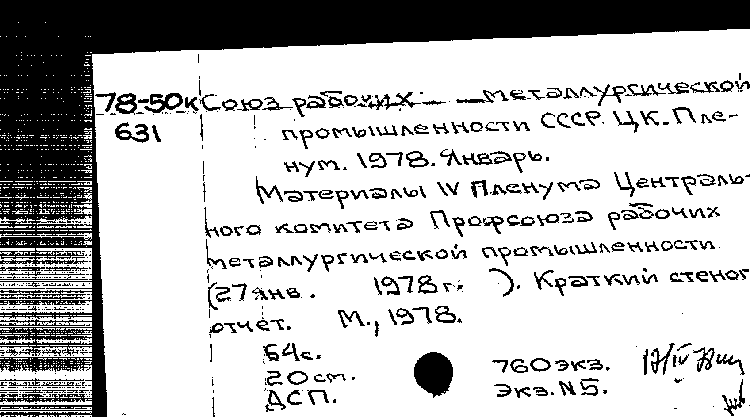 78-50к Союз рабочих металлургической
631 промышленности СССР. ЦК. Пле-
нум. 1978. Январь.
Материалы IV Пленума Централь-
ного комитета Профсоюза рабочих
металлургической промышленности
(27 янв. 1978 г. ). Краткий стеног
отчет. М., 1978.
64с.
20 см. 760 экз.
ДСП. Экз. N5.